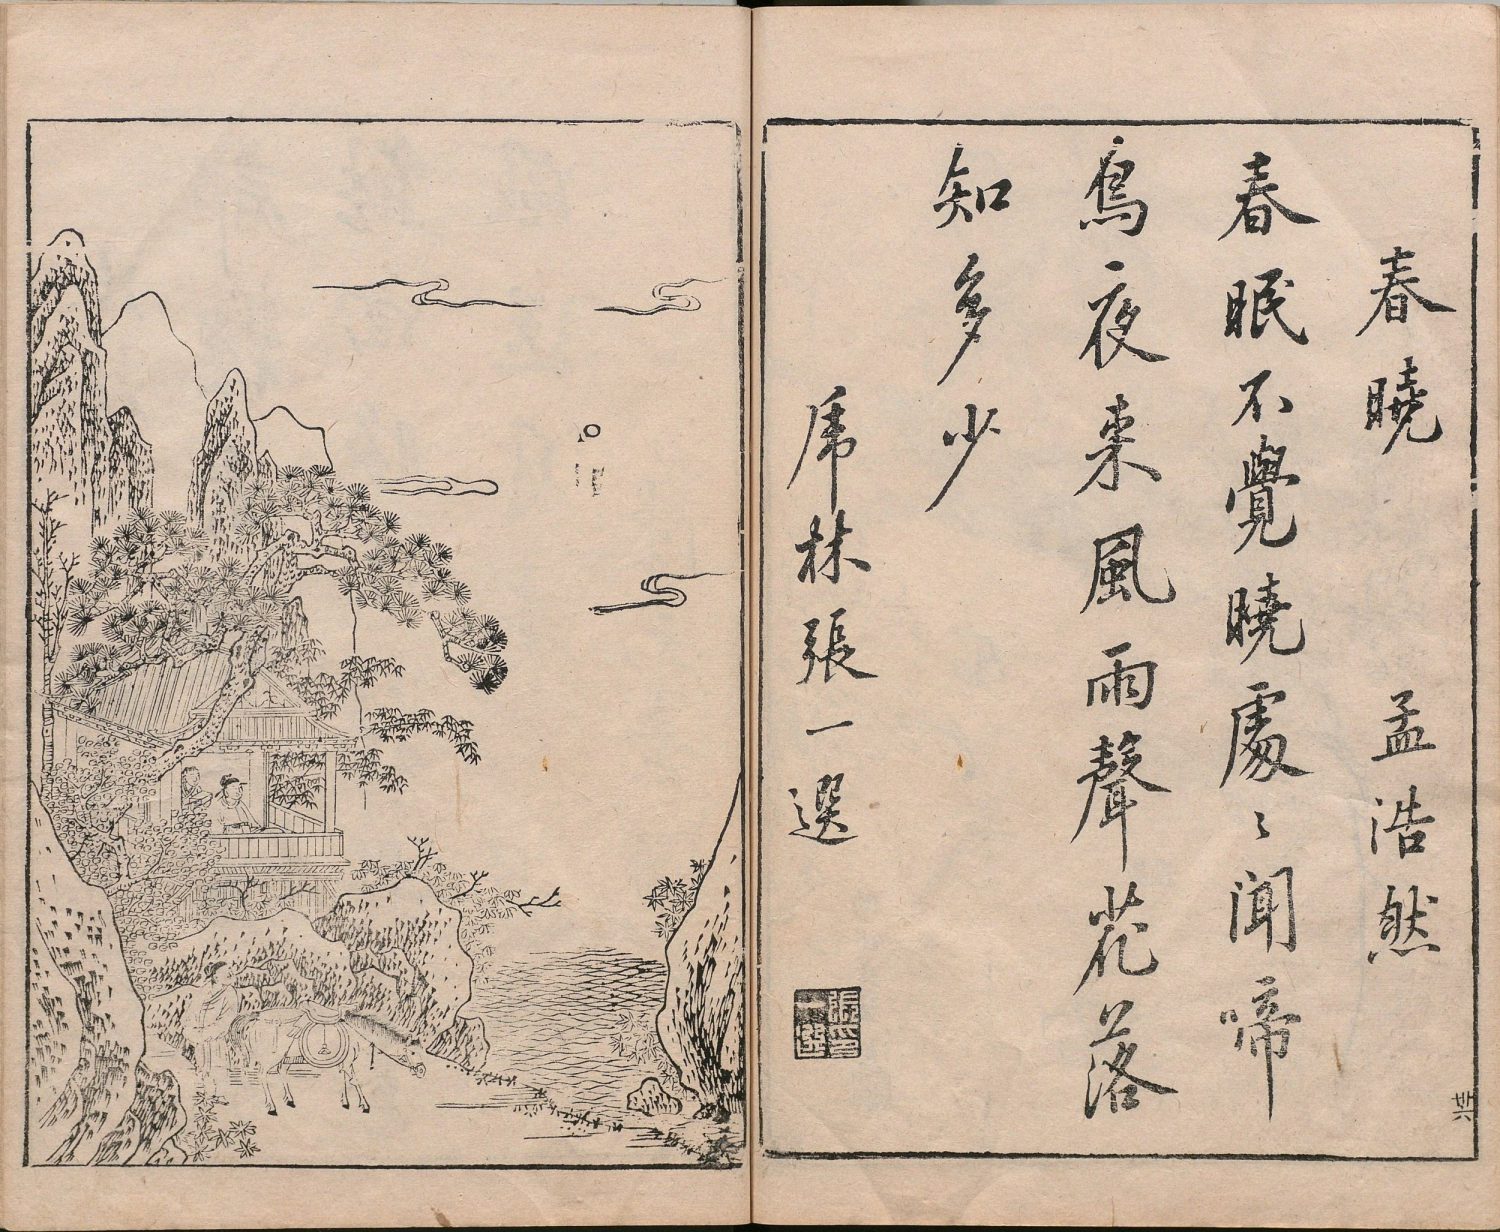 春曉 孟浩然
春眠不覺曉處〻聞啼
鳥夜来風雨聲花落
知多少
虎林張一選
張一選印